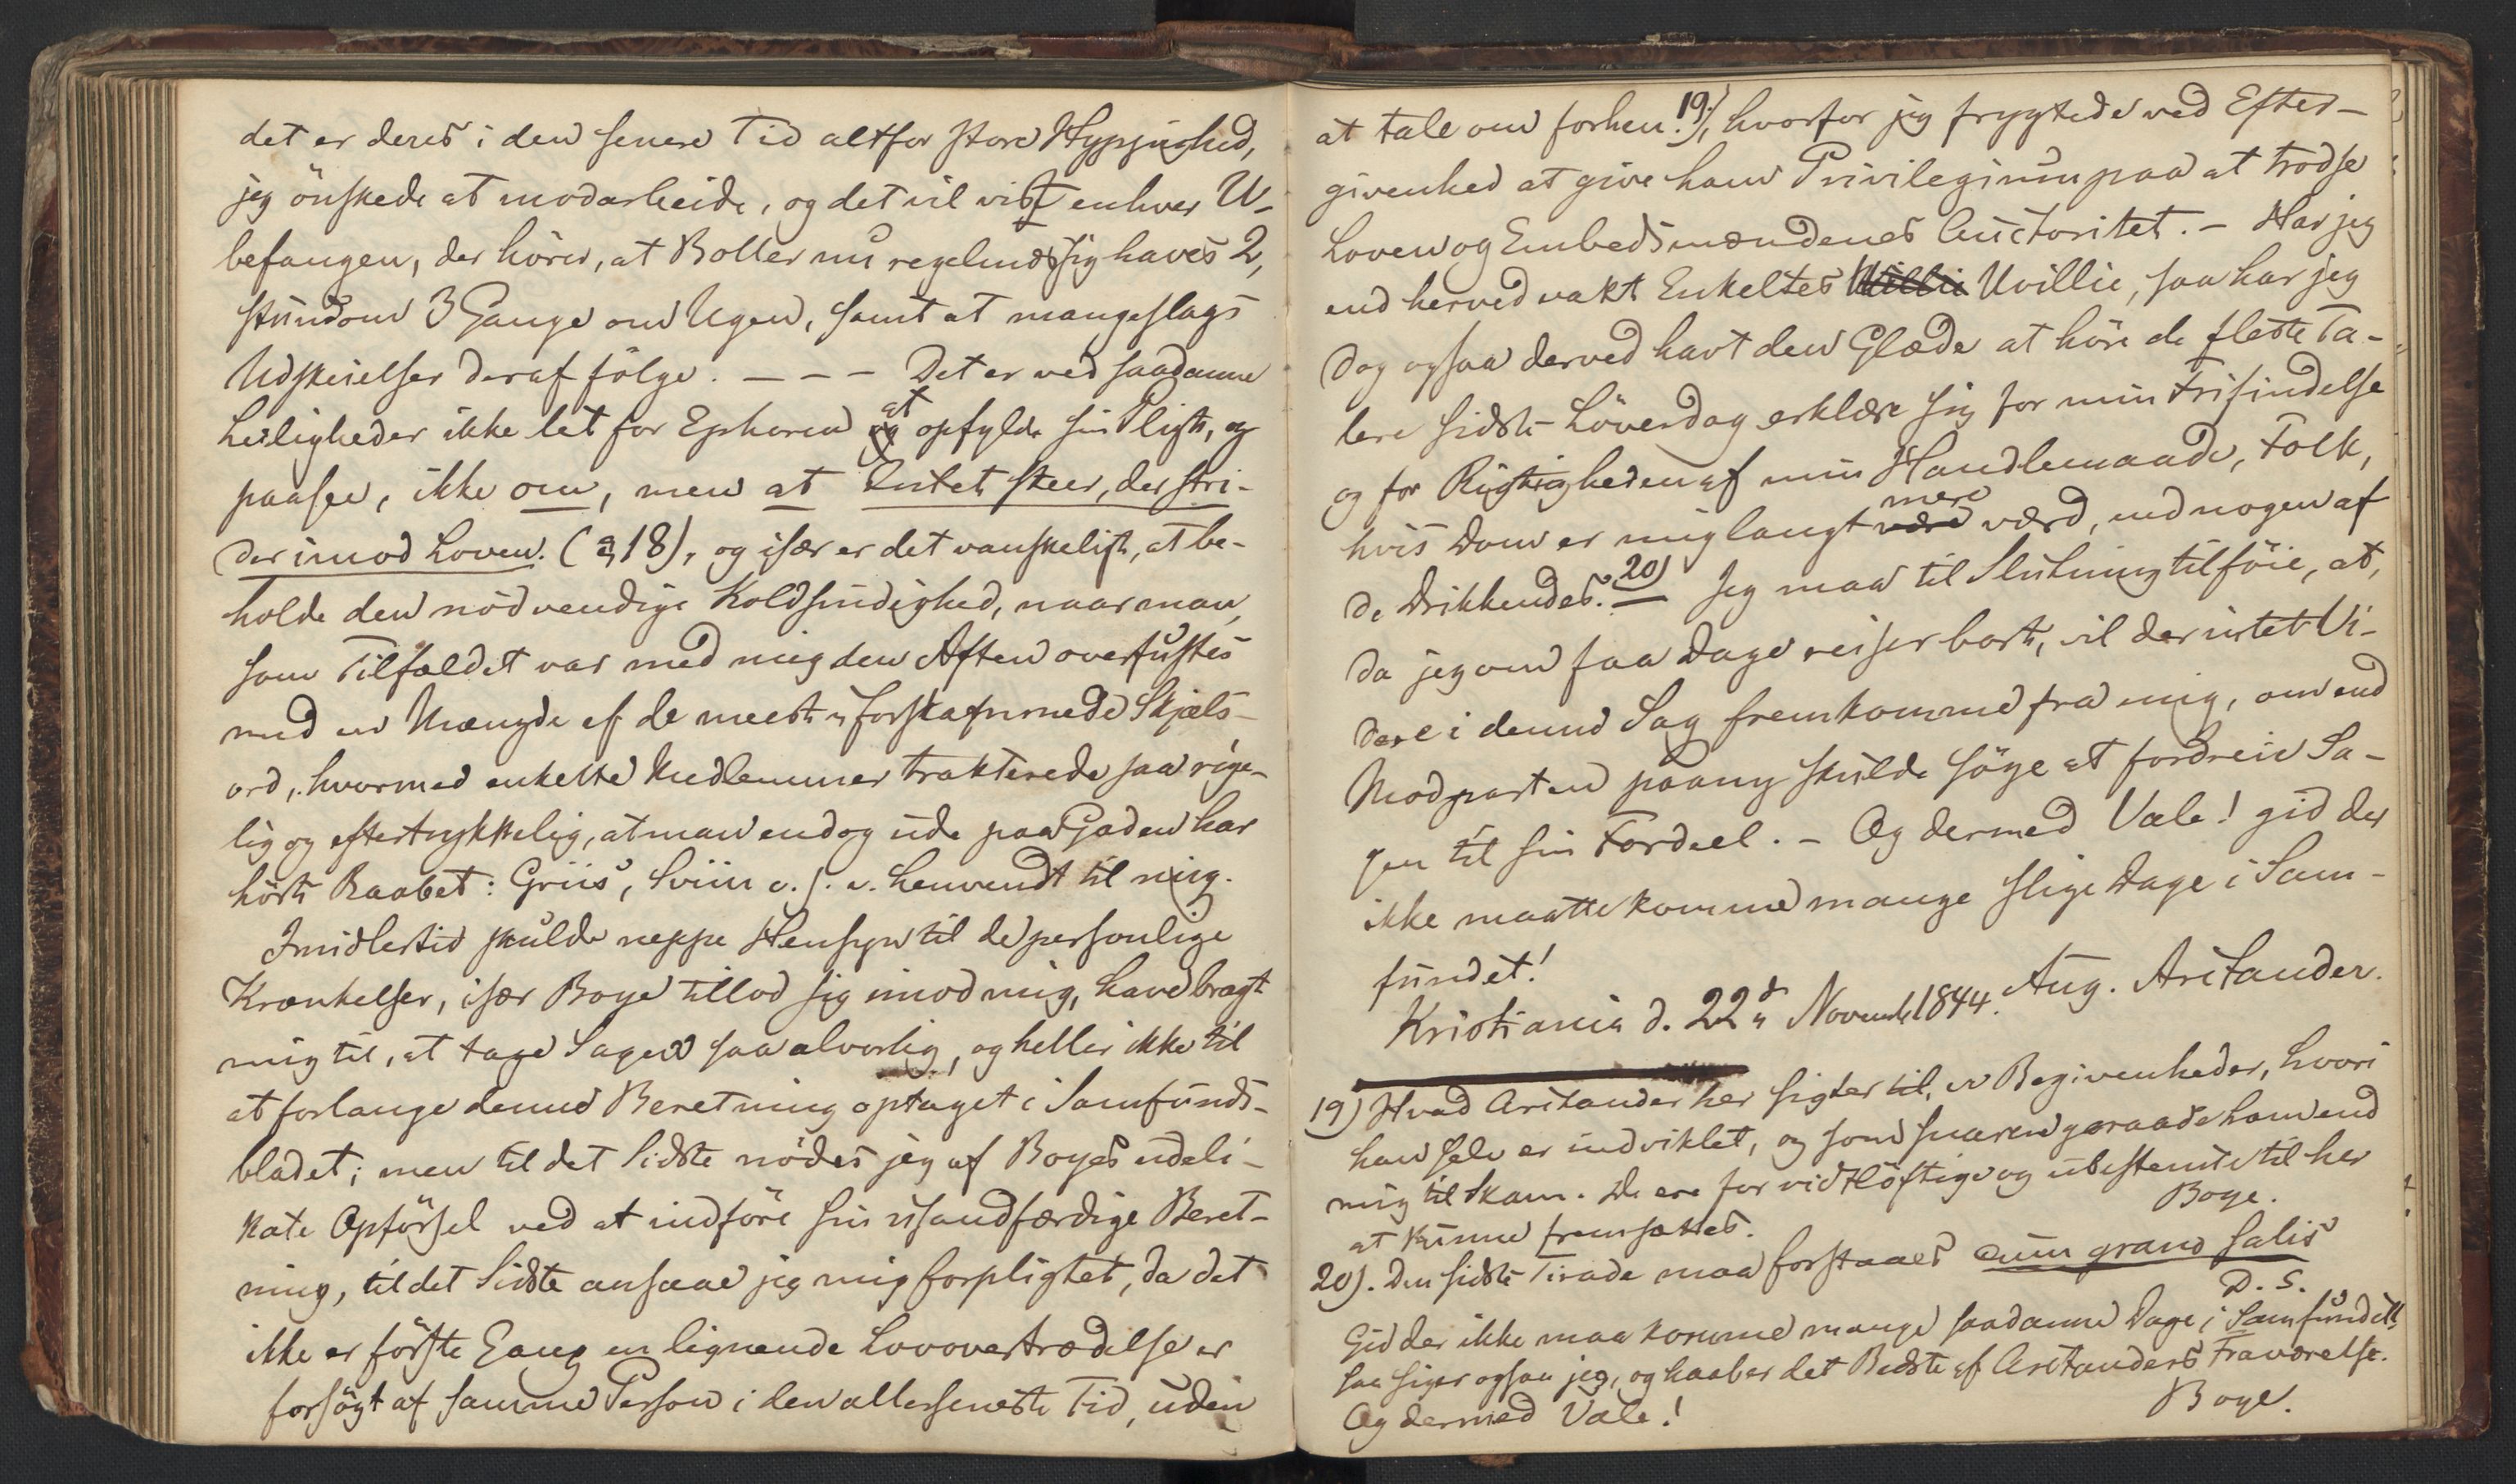 det er deres i den senere Tid altfor store Hyppighed,
jeg önskede at modarbeide, og det vil vist enhver U-
befangen, der hörer, at Boller nu regelmæssig haves 2,
stundom 3 Gange om Ugen, samt at mangeslags
Udskeielser deraf fölge. – – – Det er ved saadanne
Leiligheder ikke let for Ephoren og at opfylde sin Pligt, og
paasee, ikke om, men at Intet skeer, der stri-
der imod Loven. (a, 18), og især er det vanskeligt, at be-
holde den nödvendige Koldsindighed, naar man,
som Tilfældet var med mig den Aften overfustes
med en Mængde af de meest uforskammede Skjæls-
ord, hvormed enkelte Medlemmer trakterede saa rige-
lig og eftertrykkelig, at man endog ude paa Gaden har
hört Raabet: Griis, Sviin o. s. v. henvendt til mig.
Imidlertid skulde neppe Hensyn til de personlige
Krænkelser, især Boye tillod sig imod mig, have bragt
mig til, at tage Sagen saa alvorlig, og heller ikke til
at forlange denne Beretning optaget i Samfunds-
bladet; men til det Sidste nödes jeg af Boyes udeli-
kate Opförsel ved at indföre sin usandfærdige Beret-
ning, til det Sidste ansaae jeg mig forpligtet, da det
ikke er förste Gang en lignende Lovovertrædelse er
forsögt af samme Person i den allerseneste Tid, uden
at tale om forhen. 19), hvorfor jeg frygtede ved Efter-
givenhed at give ham Privilegium paa at trodse
Loven og Embedsmændenes Auctoritet. – Har jeg
end herved vakt Enkeltes Willie Uvillie, saa har jeg
dog ogsaa derved havt den Glæde at höre de fleste Ta-
lere sidste Löverdag erklære sig for min Frisindelse
og for Rigtigheden af min Handlemaade, Folk,
hvis Dom er mig langt være mere værd, end nogen af
de Drikkendes. 20) Jeg maa til Slutning tilföie, at,
da jeg om faa Dage reiser bort, vil der intet Vi-
dere i denne Sag fremkomme fra mig, om end
Modparten paany skulde söge at fordreie Sa-
gen til sin Fordeel. – Og dermed Vale! gid der
ikke maatte komme mange slige Dage i Sam-
fundet!
Kristiania d. 22d Novemb 1844. Aug. Aritander.
19) Hvad Aritander her sigter til, er Begivenheder, hvori
han selv er indviklet, og som snarere geraade ham end
mig til Skam. De ere for vidtlöftige og ubestemte til her
at kunne fremsættes.
Boye.
20). Den sidste Tirade maa forstaaes cum grano salis
D. S.
Gid der ikke maa komme mange saadanne Dage i Samfundet,
saa siger ogsaa jeg, og haaber det Bedste af Aritanders Fraværelse.
Og dermed Vale!
Boye.